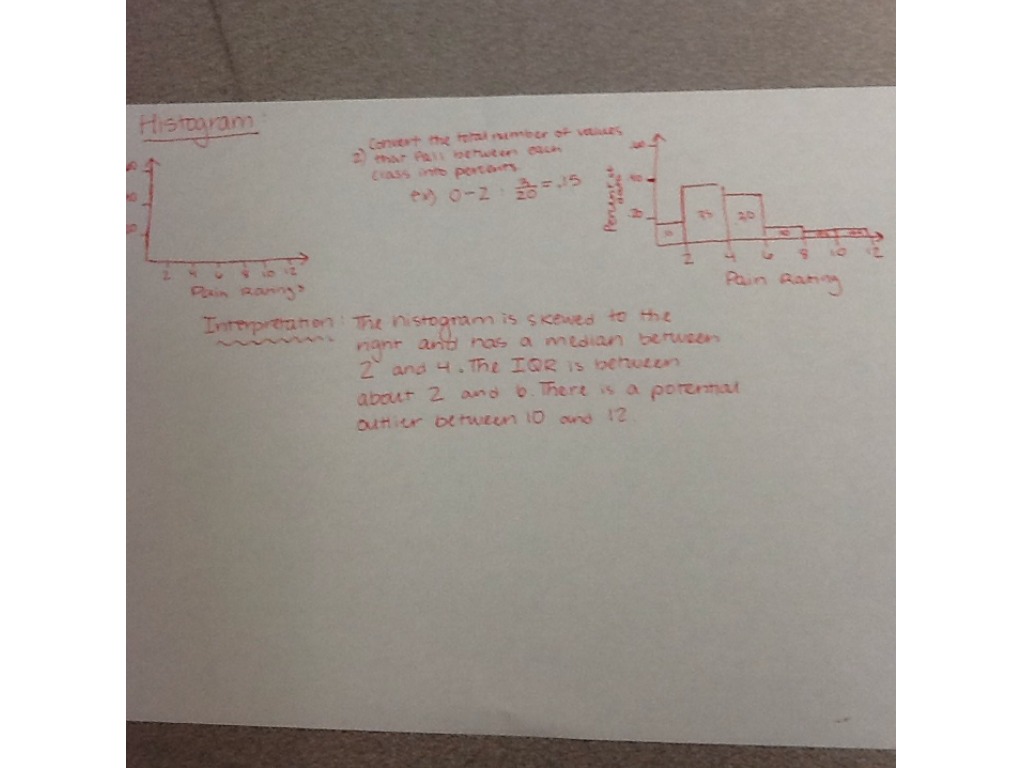 Histogram:
2 4 6 8 10 12
Pain Ratings
Convert the total number of values
2) that fall between each
class into percents.
ex) 0-2 : 3/20 = .15
20
2 4 6 8 10 12
Pain Rating
Interpretation: The histogram is skewed to the
right and has a median between
2 and 4. The IQR is between
about 2 and 6. There is a potential
outlier between 10 and 12.